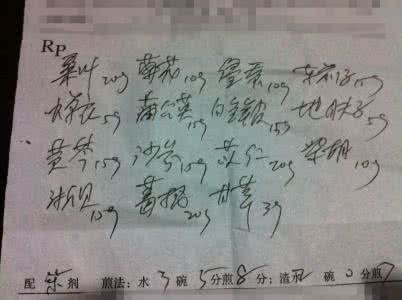 Rp
桑叶20g 薄荷10g 10g 车前子15g
5g 蒲公英15g 白鲜皮15g 地肤子5g
黄芩15g 沙参15g 苡仁20g 柴胡10g
浙贝15g 20g 甘草3g
配 剂 煎法：水3碗5分煎8分；渣 碗0分煎7